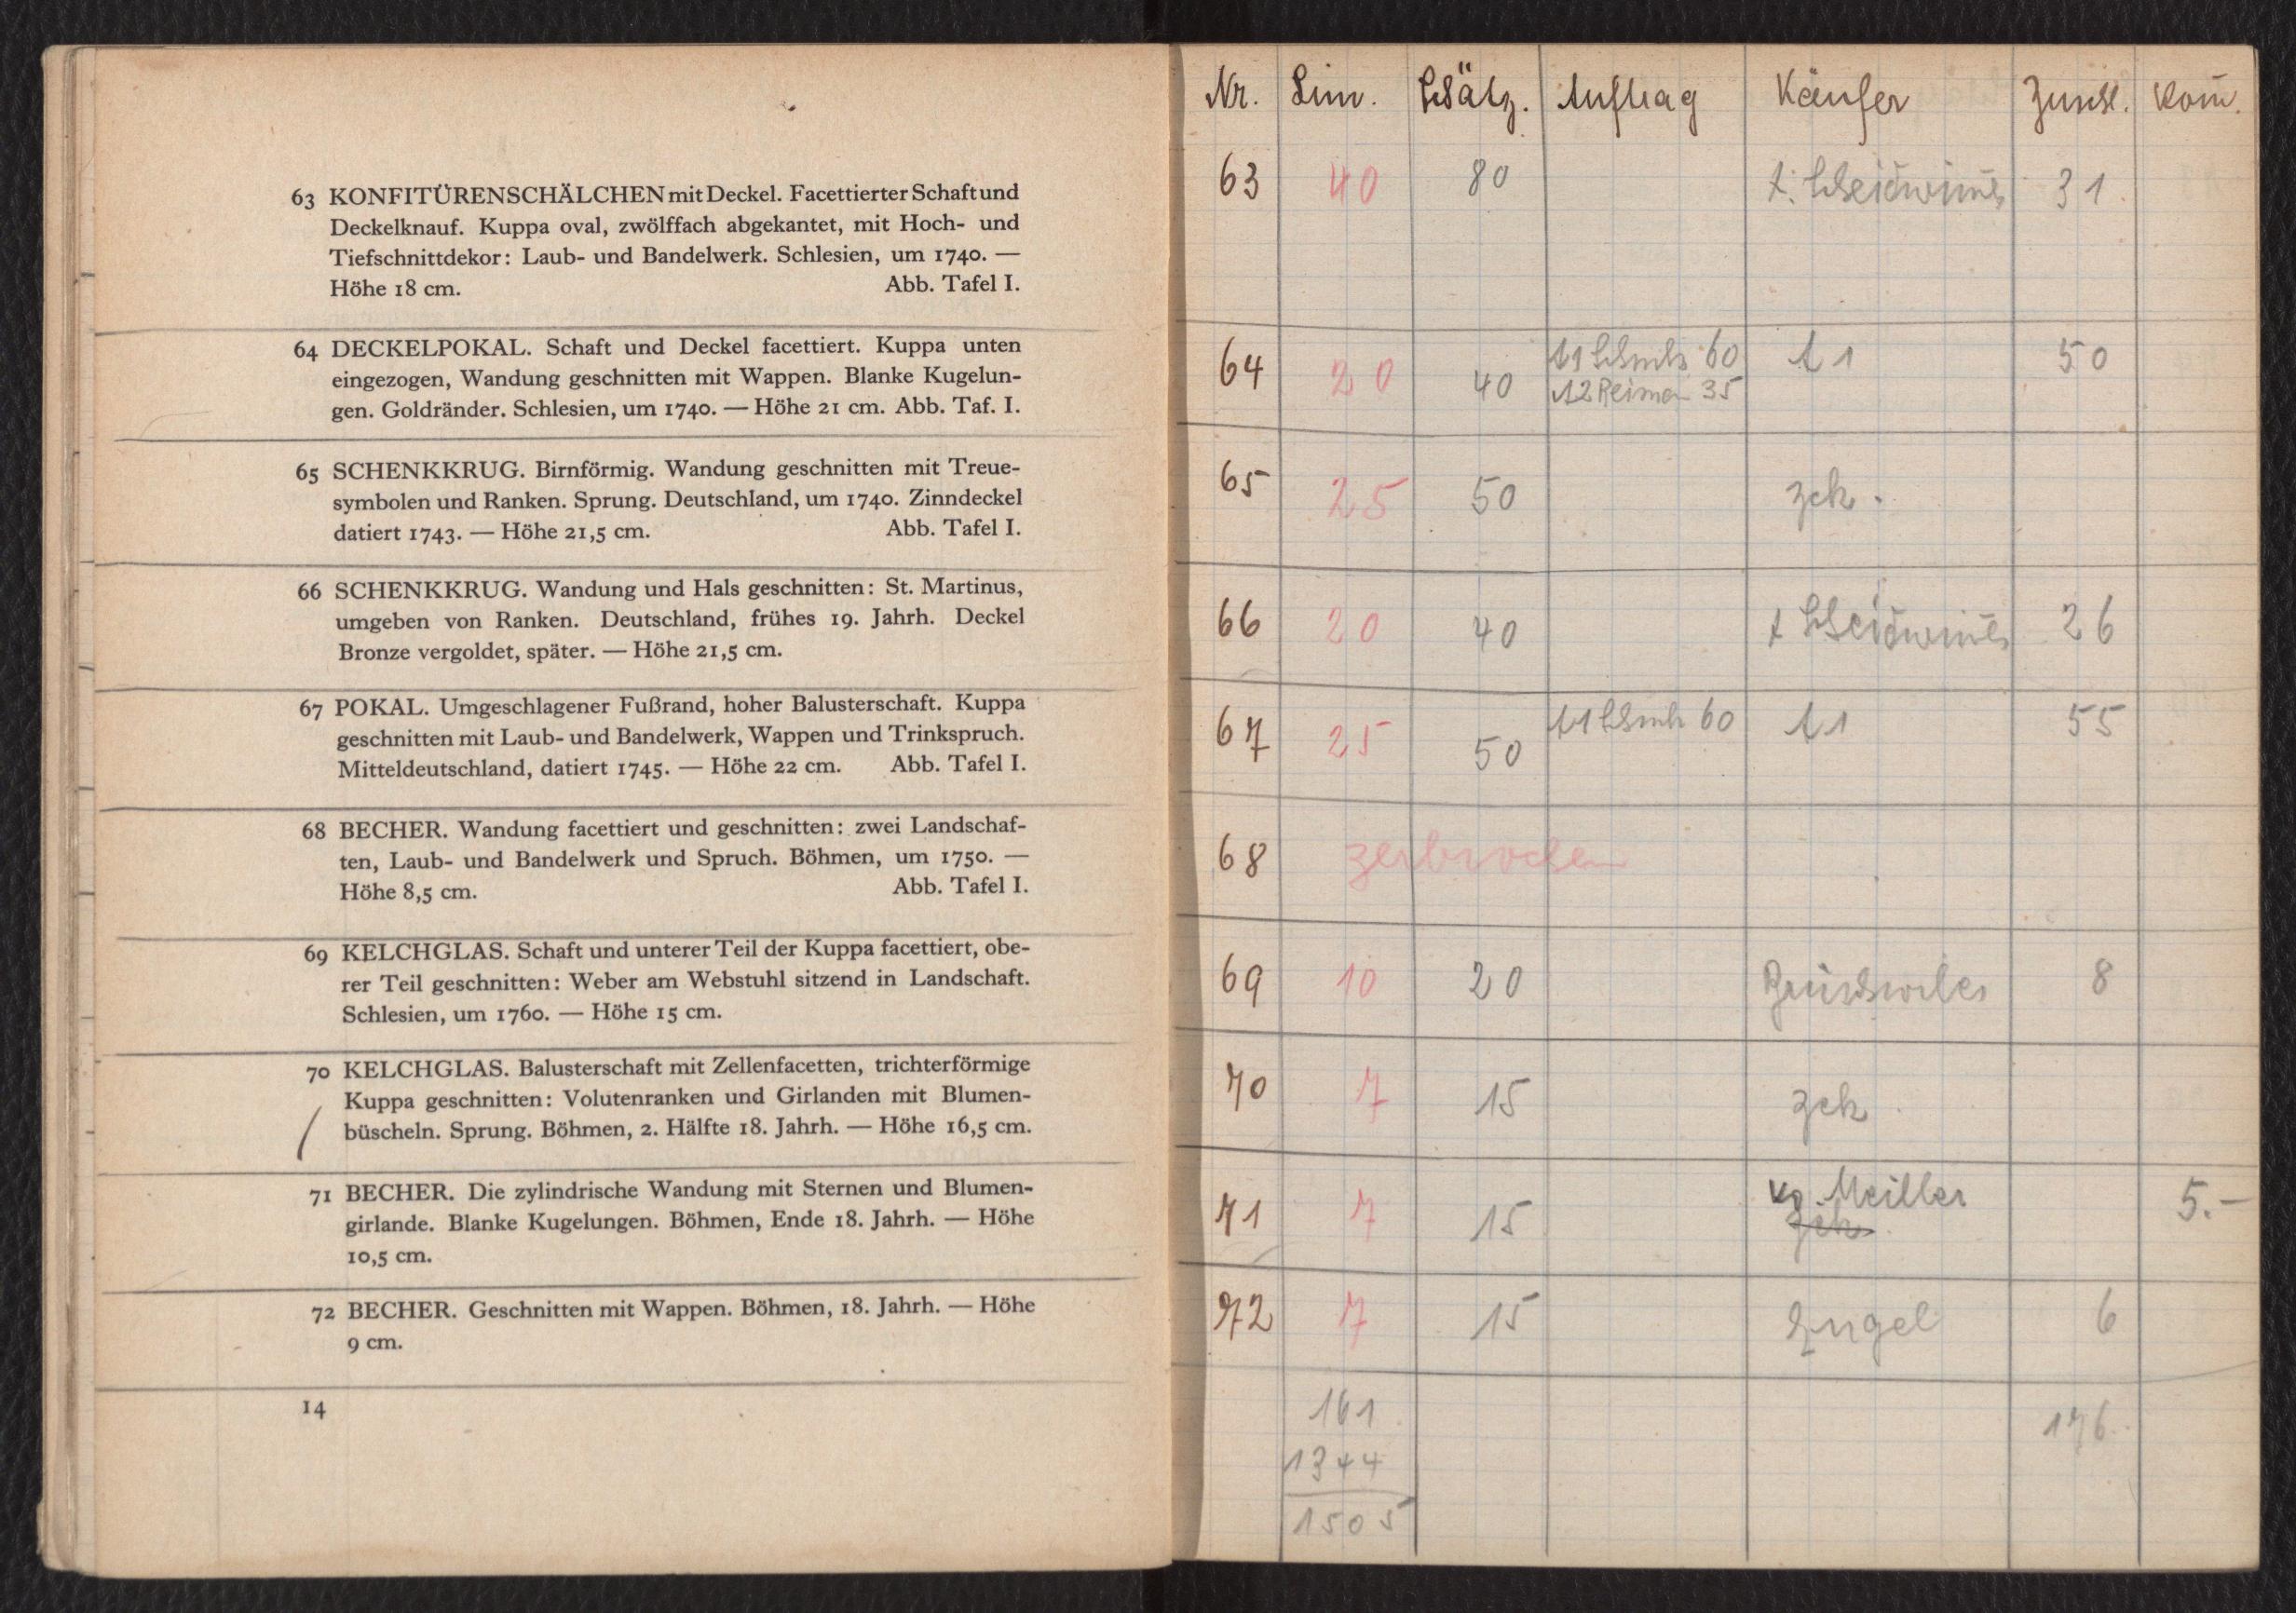 63 KONFITÜRENSCHÄLCHEN mit Deckel. Facettierter Schaft und
Deckelknauf. Kuppa oval, zwölffach abgekantet, mit Hoch- und
Tiefschnittdekor: Laub- und Bandelwerk. Schlesien, um 1740. —
Höhe 18 cm. Abb. Tafel I.
64 DECKELPOKAL. Schaft und Deckel facettiert. Kuppa unten
eingezogen, Wandung geschnitten mit Wappen. Blanke Kugelun-
gen. Goldränder. Schlesien, um 1740. — Höhe 21 cm. Abb. Taf. I.
65 SCHENKKRUG. Birnförmig. Wandung geschnitten mit Treue-
symbolen und Ranken. Sprung. Deutschland, um 1740. Zinndeckel
datiert 1743. — Höhe 21,5 cm. Abb. Tafel I.
66 SCHENKKRUG. Wandung und Hals geschnitten: St. Martinus,
umgeben von Ranken. Deutschland, frühes 19. Jahrh. Deckel
Bronze vergoldet, später. — Höhe 21,5 cm.
67 POKAL. Umgeschlagener Fußrand, hoher Balusterschaft. Kuppa
geschnitten mit Laub- und Bandelwerk, Wappen und Trinkspruch.
Mitteldeutschland, datiert 1745. — Höhe 22 cm. Abb. Tafel I.
68 BECHER. Wandung facettiert und geschnitten: zwei Landschaf-
ten, Laub- und Bandelwerk und Spruch. Böhmen, um 1750. —
Höhe 8,5 cm. Abb. Tafel I.
69 KELCHGLAS. Schaft und unterer Teil der Kuppa facettiert, obe-
rer Teil geschnitten: Weber am Webstuhl sitzend in Landschaft.
Schlesien, um 1760. — Höhe 15 cm.
70 KELCHGLAS. Balusterschaft mit Zellenfacetten, trichterförmige
Kuppa geschnitten: Volutenranken und Girlanden mit Blumen-
büscheln. Sprung. Böhmen, 2. Hälfte 18. Jahrh. — Höhe 16,5 cm.
71 BECHER. Die zylindrische Wandung mit Sternen und Blumen-
girlande. Blanke Kugelungen. Böhmen, Ende 18. Jahrh. — Höhe
10,5 cm.
72 BECHER. Geschnitten mit Wappen. Böhmen, 18. Jahrh. — Höhe
9 cm.
14
Nr. Lim. Schätz. Auftrag Käufer Zuschl. Kom̄.
63 40 80 31
64 20 40 60 A1 50
35
65 25 50 zck.
66 20 40 26
67 25 50 A1 60 A1 55
68 zerbrochen
69 10 20 8
70 7 15 zck
71 7 15 Vg. Meiller 5.-
zck
72 7 15 Engel 6
161 176
1344
1505